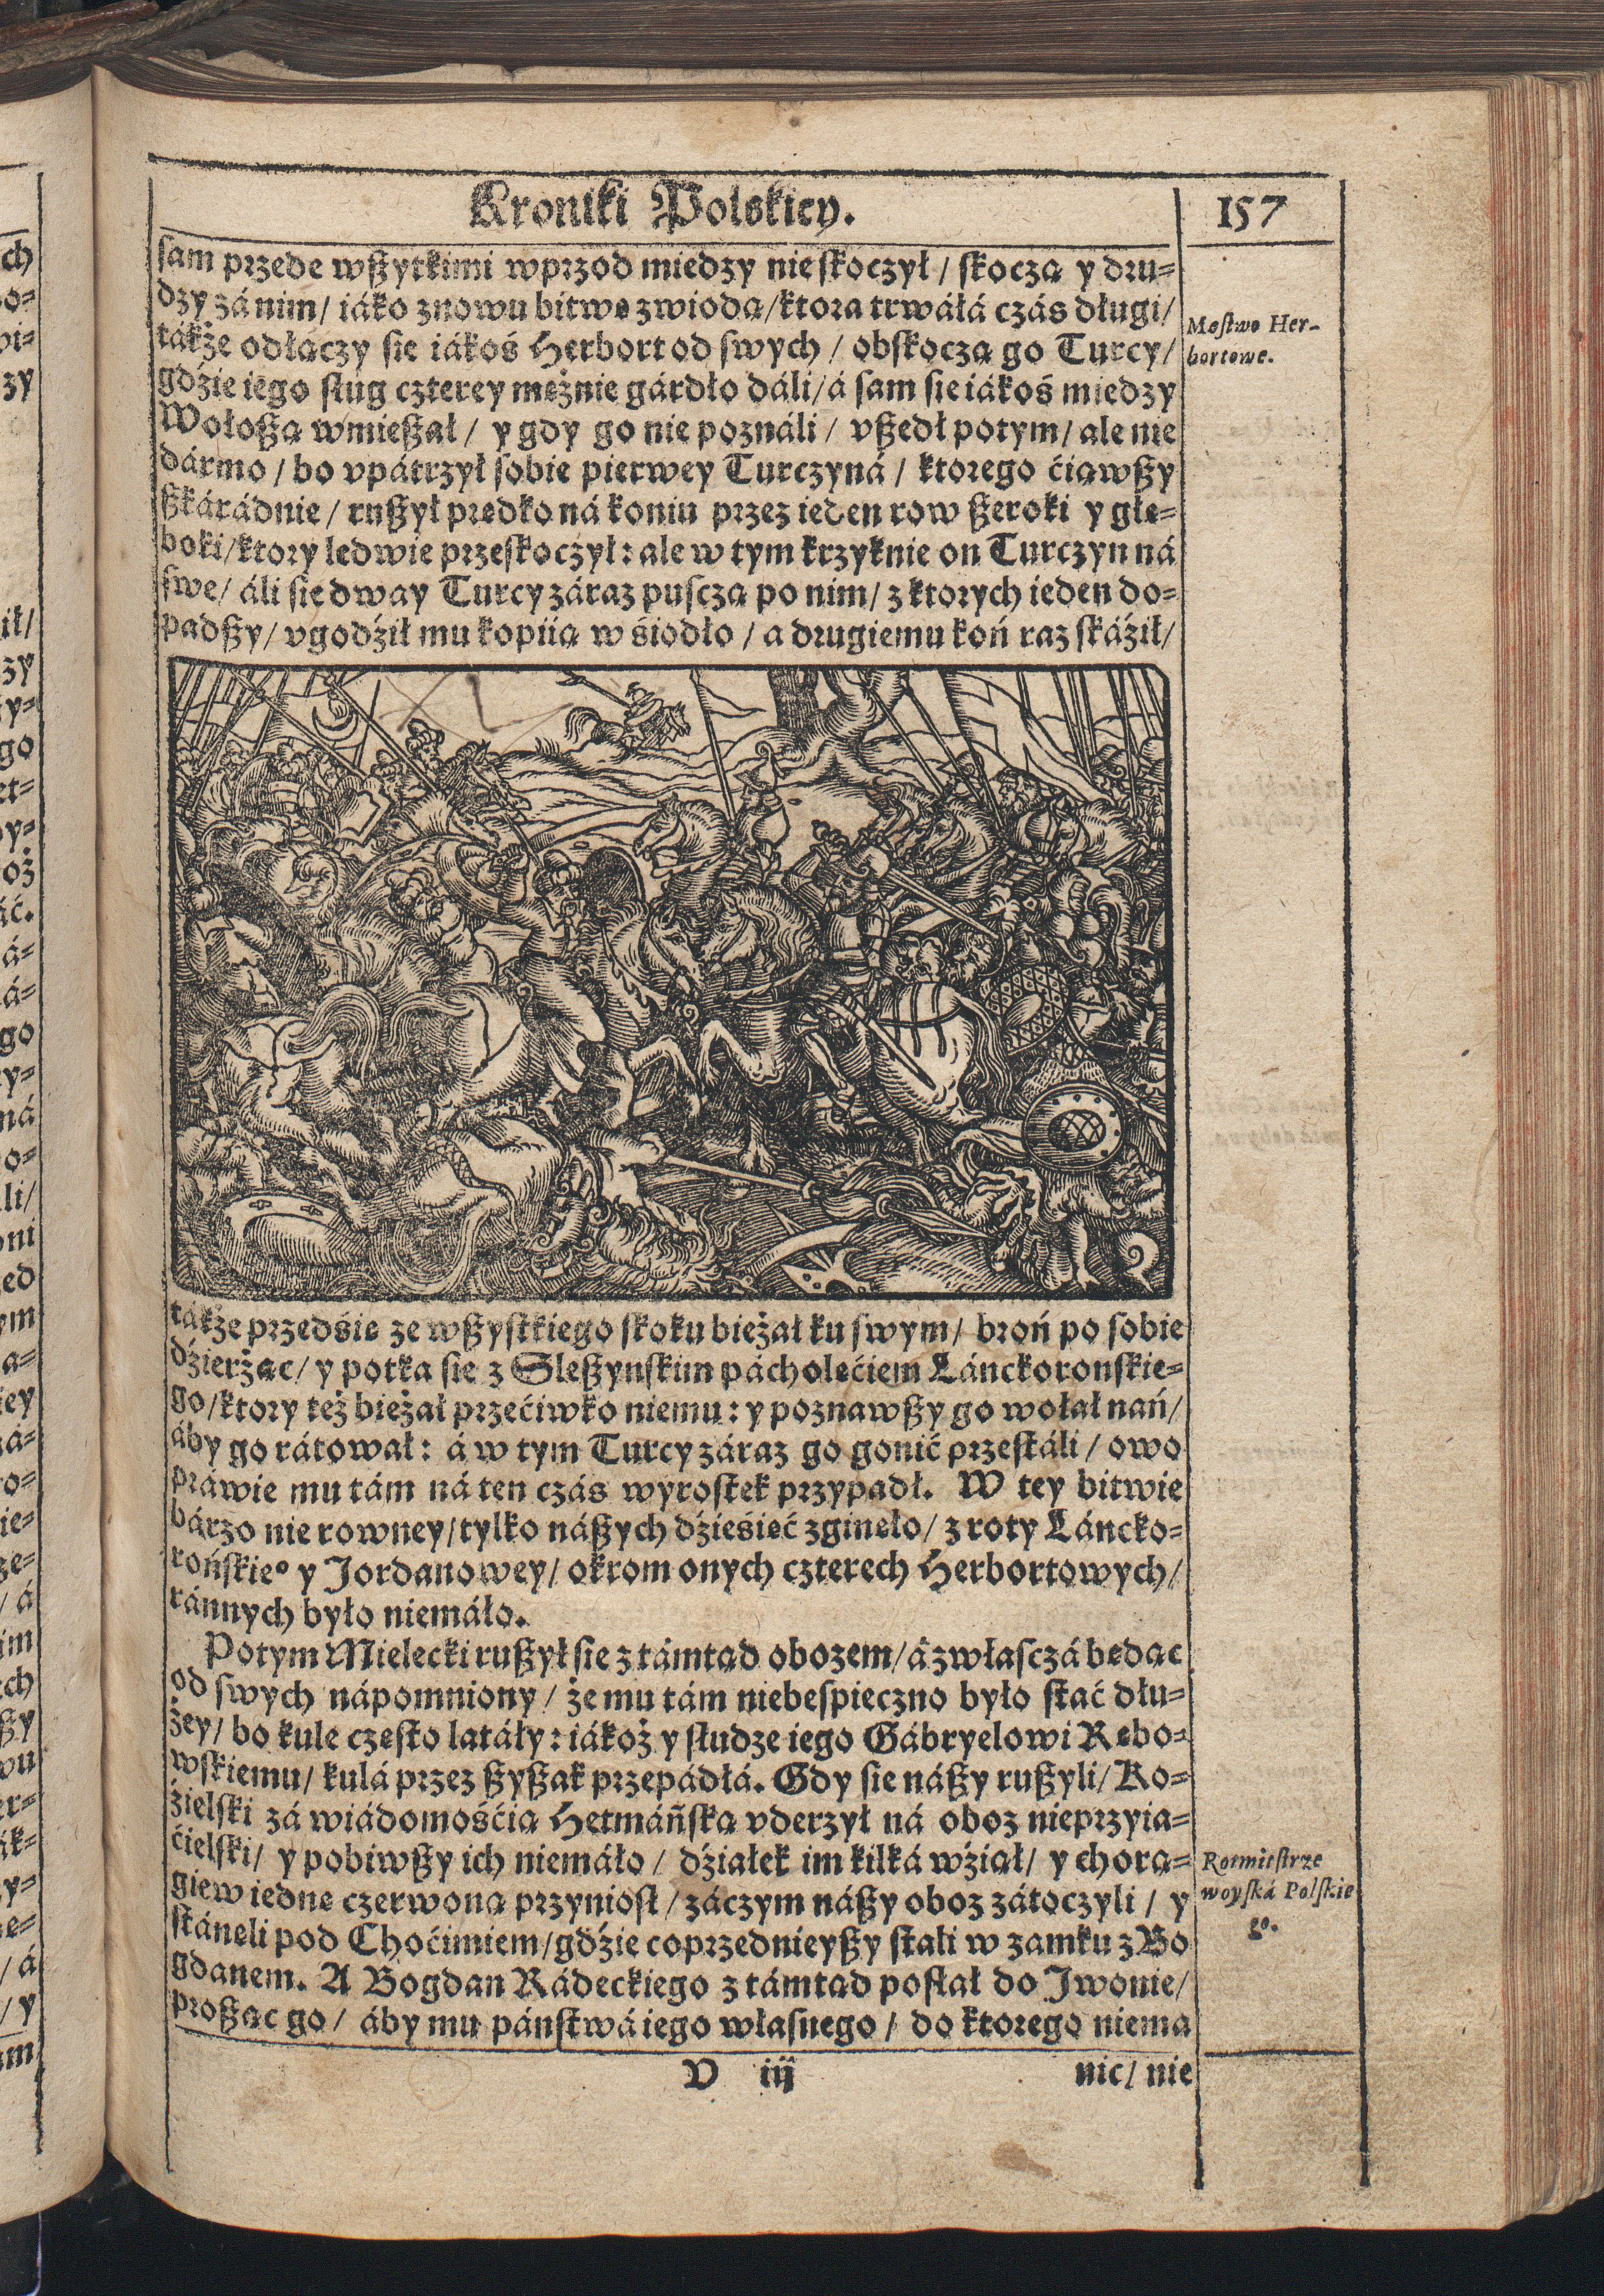 Kroniki Polskiey.
157
sam przede wßytkimi wprzod miedzy nie skoczył / skoczą y dru⸗
dzy zá nim / iáko znowu bitwę zwiodą / ktora trwáłá czás długi /
tákże odłączy się iákoś Herbort od swych / obskoczą go Turcy /
gdźie iego sług czterey mężnie gárdło dáli / á sam się iákoś miedzy
Wołoßą wmießał / y gdy go nie poználi / vßedł potym / ale nie
dármo / bo vpátrzył sobie pierwey Turczyná / ktorego ćiąwßy
ßkárádnie / rußył prędko ná koniu przez ieden row ßeroki y głę⸗
boki / ktory ledwie przeskoczył : ale w tym krzyknie on Turczyn ná
swe / áli się dway Turcy záraz puscza po nim / z ktorych ieden do⸗
padßy / vgodźił mu kopiią w śiodło / a drugiemu koń raz skáźił /
Męstwo Her-
bortowe.
tákże przedśię ze wßystkiego skoku bieżał ku swym / broń po sobie
dźierżąc / y potka się z Sleßynskim pácholęćiem Lánckoronskie⸗
go / ktory też bieżał przećiwko niemu : y poznawßy go wołał nań /
áby go rátował : á w tym Turcy záraz go gonić przestáli / owo
práwie mu tám ná ten czás wyrostek przypadł. W tey bitwie
bárzo nie rowney / tylko náßych dźieśięć zginęło / z roty Láncko⸗
rońskieº y Jordanowey / okrom onych czterech Herbortowych /
ránnych było niemáło.
Potym Mielecki rußył się z támtąd obozem / á zwłasczá będąc
od swych nápomniony / że mu tám niebespieczno było stać dłu⸗
żey / bo kule często latáły : iákoż y słudze iego Gábryelowi Rębo⸗
wskiemu / kulá przez ßyßak przepádłá. Gdy się náßy rußyli / Ko⸗
źielski zá wiádomośćią Hetmáńską vderzył ná oboz nieprzyia⸗
ćielski / y pobiwßy ich niemáło / dźiałek im kilká wźiął / y chorą⸗
giew iednę czerwoną przyniosł / záczym náßy oboz zátoczyli / y
stánęli pod Choćimiem / gdźie coprzednieyßy stali w zamku z Bo
gdanem. A Bogdan Rádeckiego z támtąd posłał do Jwonie /
proßąc go / áby mu páństwá iego własnego / do ktorego niema
Rotmistrze
woyská Polskie
go.
V iij
nic / nie